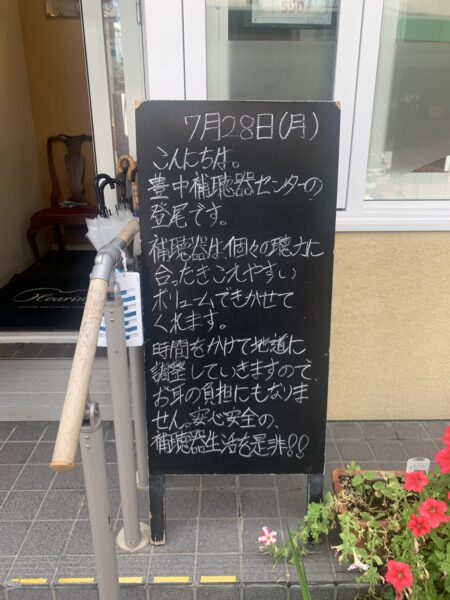 550
7月28日(月)
こんにちは。
豊中補聴器センターの
登尾です。
補聴器は、個々の聴力に
合ったきこえやすい
ボリュームできかせて
くれます。
時間をかけて地道に
調整していきますので、
お耳の負担にもなりま
せん。安心安全の、
補聴器生活を是非!!
Hearin